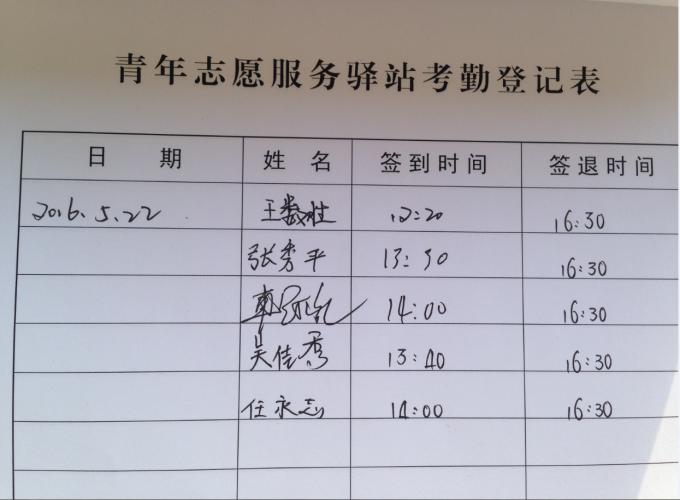 青年志愿服务驿站考勤登记表
日 期 姓 名 签到时间 签退时间
2016.5.22 王数 12:20 16:30
张秀平 13:30 16:30
14:00 16:30
吴佳秀 13:40 16:30
任永志 14:00 16:30